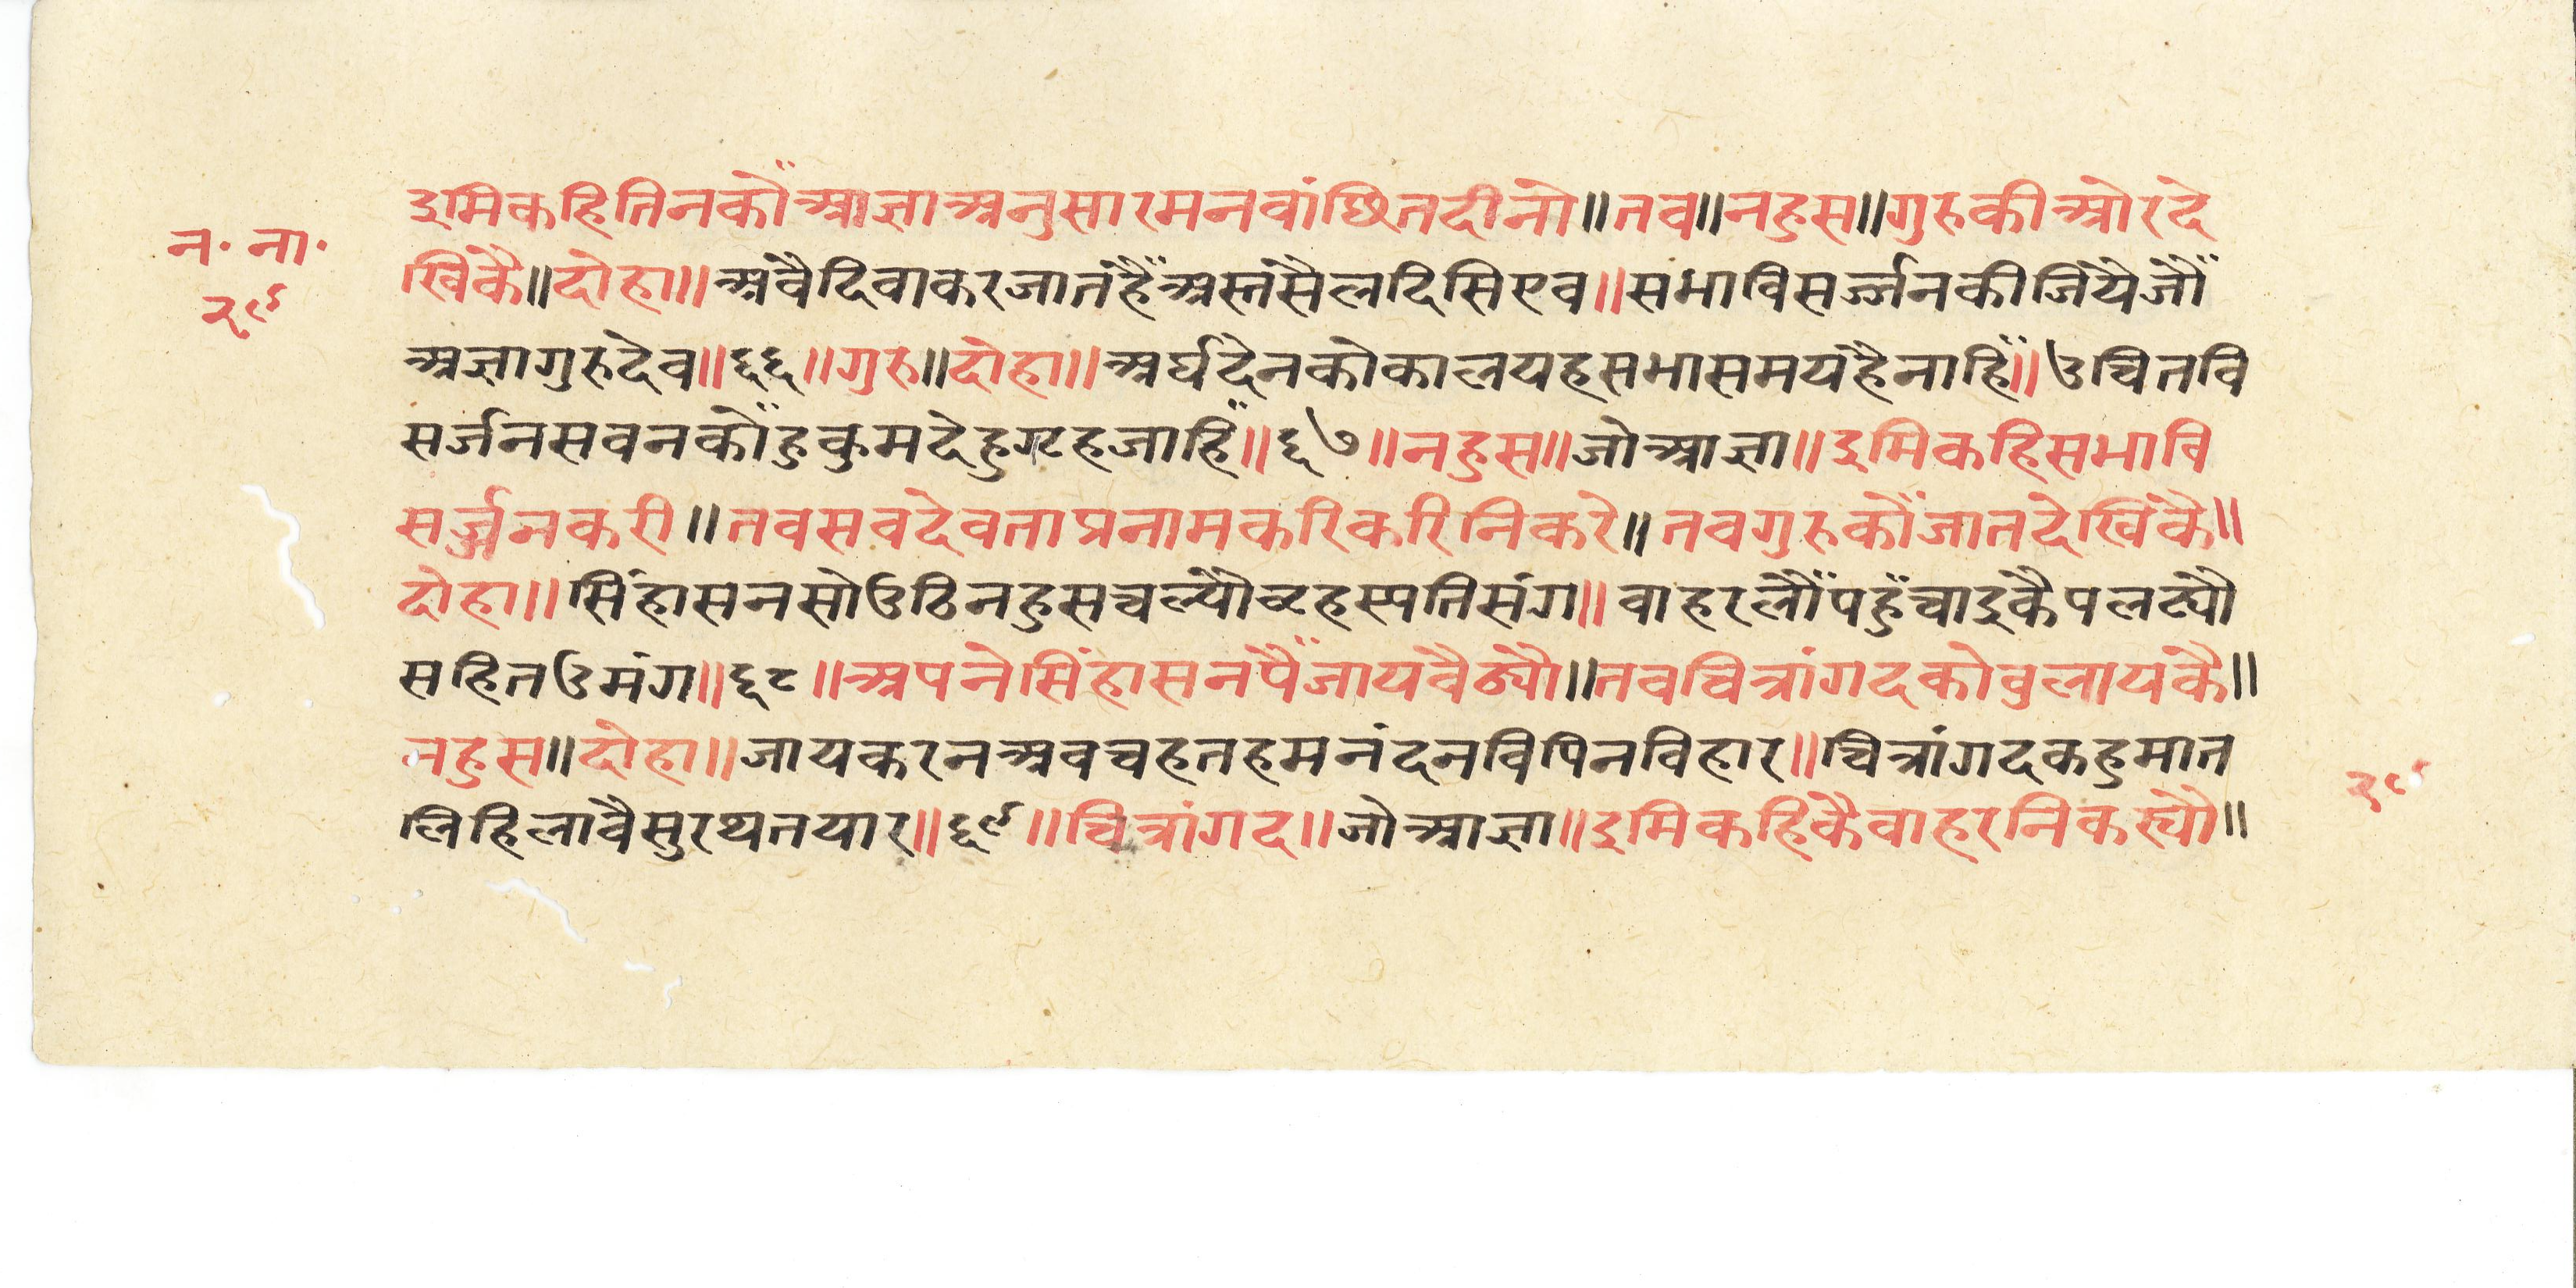 न॰ ना॰
२९
इमिकहितिनकौंआज्ञाअनुसारमनवांछितदीनो॥तव॥नहुस॥गुरुकीओरदे
खिकै॥दोहा॥अवैदिवाकरजातहैंअस्तसैलदिसिएव॥सभाविसर्ज्जनकीजियेजौं
अज्ञागुरुदेव॥६६॥गुरु॥दोहा॥अर्घदेनकोकालयहसभासमयहैनाहिं॥उचितवि
सर्जनसवनकौंहुकुमदेहुगृहजाहिं॥६७॥नहुस॥जोआज्ञा॥इमिकहिसभावि
सर्ज्जनकरी॥तवसवदेवताप्रनामकरिकरिनिकरे॥तवगुरुकौंजातदेखिकै॥
दोहा॥सिंहासनसोउठिनहुसचल्यौवृहस्पतिसंग॥वाहरलौंपहुँचाइकैपलट्यौ
सहितउमंग॥६८॥अपनेसिंहासनपैंजायवैठ्यौ॥तवचित्रांगदकोवुलायकै॥
नहुस॥दोहा॥जायकरनअवचहतहमनंदनविपिनविहार॥चित्रांगदकहुमात
लिहिलावैसुरथतयार॥६९॥चित्रांगद॥जोआज्ञा॥इमिकहिकैवाहरनिकस्यौ॥
२९